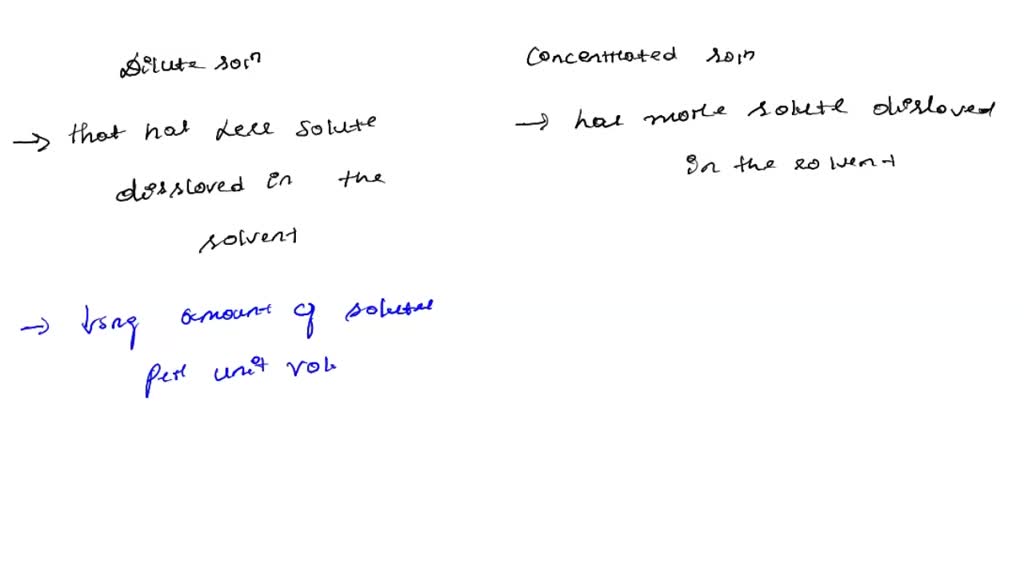 Dilute soln
→ that has less solute
dissloved in the
solvent
→ amount of solutes
per unit vol
Concentrated soln
→ has more solute disloved
in the solvent